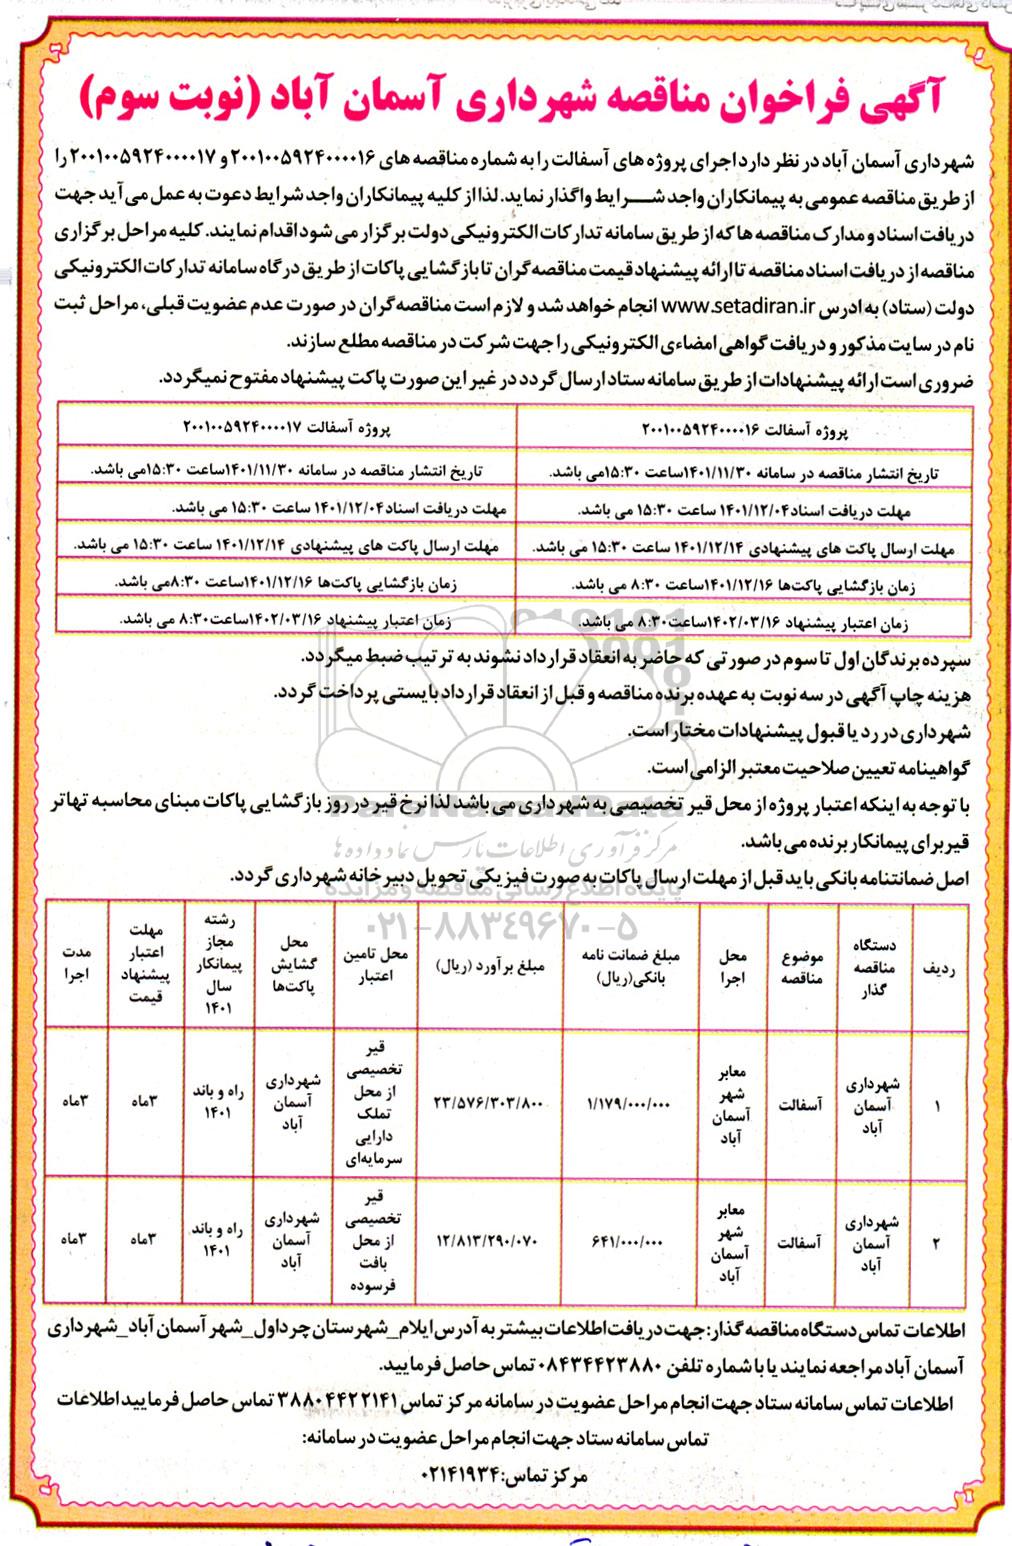 آگهی فراخوان مناقصه شهرداری آسمان آباد (نوبت سوم)
شهرداری آسمان آباد در نظر دارد اجرای پروژه های آسفالت را به شماره مناقصه های ۲۰۰۱۰۰۵۹۲۴۰۰۰۰۱۶ و ۲۰۰۱۰۰۵۹۲۴۰۰۰۰۱۷ را
از طریق مناقصه عمومی به پیمانکاران واجد شرایط واگذار نماید. لذا از کلیه پیمانکاران واجد شرایط دعوت به عمل می آید جهت
دریافت اسناد و مدارک مناقصه ها که از طریق سامانه تدارکات الکترونیکی دولت برگزار می شود اقدام نمایند. کلیه مراحل برگزاری
مناقصه از دریافت اسناد مناقصه تا ارائه پیشنهاد قیمت مناقصه گران تا بازگشایی پاکات از طریق درگاه سامانه تدارکات الکترونیکی
دولت (ستاد) به ادرس www.setadiran.ir انجام خواهد شد و لازم است مناقصه گران در صورت عدم عضویت قبلی، مراحل ثبت
نام در سایت مذکور و دریافت گواهی امضاءی الکترونیکی را جهت شرکت در مناقصه مطلع سازند.
ضروری است ارائه پیشنهادات از طریق سامانه ستاد ارسال گردد در غیر این صورت پاکت پیشنهاد مفتوح نمیگردد.
پروژه آسفالت ۲۰۰۱۰۰۵۹۲۴۰۰۰۰۱۶
پروژه آسفالت ۲۰۰۱۰۰۵۹۲۴۰۰۰۰۱۷
تاریخ انتشار مناقصه در سامانه ۱۴۰۱/۱۱/۳۰ساعت ۱۵:۳۰می باشد.
تاریخ انتشار مناقصه در سامانه ۱۴۰۱/۱۱/۳۰ساعت ۱۵:۳۰می باشد.
مهلت دریافت اسناد۱۴۰۱/۱۲/۰۴ ساعت ۱۵:۳۰ می باشد.
مهلت دریافت اسناد۱۴۰۱/۱۲/۰۴ ساعت ۱۵:۳۰ می باشد.
مهلت ارسال پاکت های پیشنهادی ۱۴۰۱/۱۲/۱۴ ساعت ۱۵:۳۰ می باشد.
مهلت ارسال پاکت های پیشنهادی ۱۴۰۱/۱۲/۱۴ ساعت ۱۵:۳۰ می باشد.
زمان بازگشایی پاکت‌ها ۱۴۰۱/۱۲/۱۶ساعت ۸:۳۰ می باشد.
زمان بازگشایی پاکت‌ها ۱۴۰۱/۱۲/۱۶ساعت ۸:۳۰می باشد.
زمان اعتبار پیشنهاد ۱۴۰۲/۰۳/۱۶ساعت۸:۳۰ می باشد.
زمان اعتبار پیشنهاد ۱۴۰۲/۰۳/۱۶ساعت۸:۳۰ می باشد.
سپرده برندگان اول تا سوم در صورتی که حاضر به انعقاد قرارداد نشوند به ترتیب ضبط میگردد.
هزینه چاپ آگهی در سه نوبت به عهده برنده مناقصه و قبل از انعقاد قرارداد بایستی پرداخت گردد.
شهرداری در رد یا قبول پیشنهادات مختار است.
گواهینامه تعیین صلاحیت معتبر الزامی است.
با توجه به اینکه اعتبار پروژه از محل قیر تخصیصی به شهرداری می باشد لذا نرخ قیر در روز بازگشایی پاکات مبنای محاسبه تهاتر
قیر برای پیمانکار برنده می باشد.
ParsNamadData
مرکز فرآوری اطلاعات پارس نماد داده ها
اصل ضمانتنامه بانکی باید قبل از مهلت ارسال پاکات به صورت فیزیکی تحویل دبیرخانه شهرداری گردد.
پایگاه اطلاع رسانی مناقصه و مزایده
۰۲۱-۸۸۳۴۹۶۷۰-۵
ردیف
دستگاه
مناقصه
گذار
موضوع
مناقصه
محل
اجرا
مبلغ ضمانت نامه
بانکی(ریال)
مبلغ برآورد (ریال)
محل تامین
اعتبار
محل
گشایش
پاکت‌ها
رشته
مجاز
پیمانکار
سال
۱۴۰۱
مهلت
اعتبار
پیشنهاد
قیمت
مدت
اجرا
۱
شهرداری
آسمان
آباد
آسفالت
معابر
شهر
آسمان
آباد
۱/۱۷۹/۰۰۰/۰۰۰
۲۳/۵۷۶/۳۰۳/۸۰۰
قیر
تخصیصی
از محل
تملک
دارایی
سرمایه‌ای
شهرداری
آسمان
آباد
راه و باند
۱۴۰۱
۳ماه
۳ماه
۲
شهرداری
آسمان
آباد
آسفالت
معابر
شهر
آسمان
آباد
۶۴۱/۰۰۰/۰۰۰
۱۲/۸۱۳/۲۹۰/۰۷۰
قیر
تخصیصی
از محل
بافت
فرسوده
شهرداری
آسمان
آباد
راه و باند
۱۴۰۱
۳ماه
۳ماه
اطلاعات تماس دستگاه مناقصه گذار: جهت دریافت اطلاعات بیشتر به آدرس ایلام_شهرستان چرداول_شهر آسمان آباد_شهرداری
آسمان آباد مراجعه نمایند یا با شماره تلفن ۰۸۴۳۴۴۲۳۸۸۰ تماس حاصل فرمایید.
اطلاعات تماس سامانه ستاد جهت انجام مراحل عضویت در سامانه مرکز تماس ۳۸۸۰۴۴۲۲۱۴۱ تماس حاصل فرمایید اطلاعات
تماس سامانه ستاد جهت انجام مراحل عضویت در سامانه:
مرکز تماس:۰۲۱۴۱۹۳۴